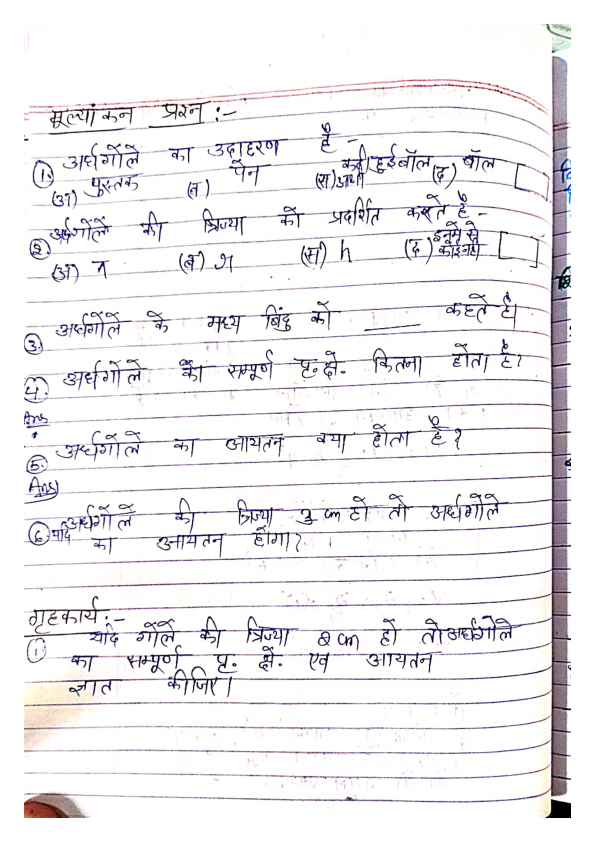 मूल्यांकन प्रश्न :-
① अर्धगोले का उदाहरण है -
(अ) पुस्तक (ब) पेन (स) आधी कटी हुई बॉल (द) बॉल
② अर्धगोले की त्रिज्या को प्रदर्शित करते है -
(अ) (ब) (स) h (द) इनमें से कोई नहीं
③. अर्धगोले के मध्य बिंदु को ____ कहते है।
④. अर्धगोले का सम्पूर्ण पृ. क्षे. कितना होता है?
Ans
⑤. अर्धगोले का आयतन क्या होता है?
Ans
⑥ यदि अर्धगोले की त्रिज्या 3 cm हो तो अर्धगोले
का आयतन होगा?
गृहकार्य :-
① यदि गोले की त्रिज्या 2 cm हो तो अर्धगोले
का सम्पूर्ण पृ. क्षे. एवं आयतन
ज्ञात कीजिए।